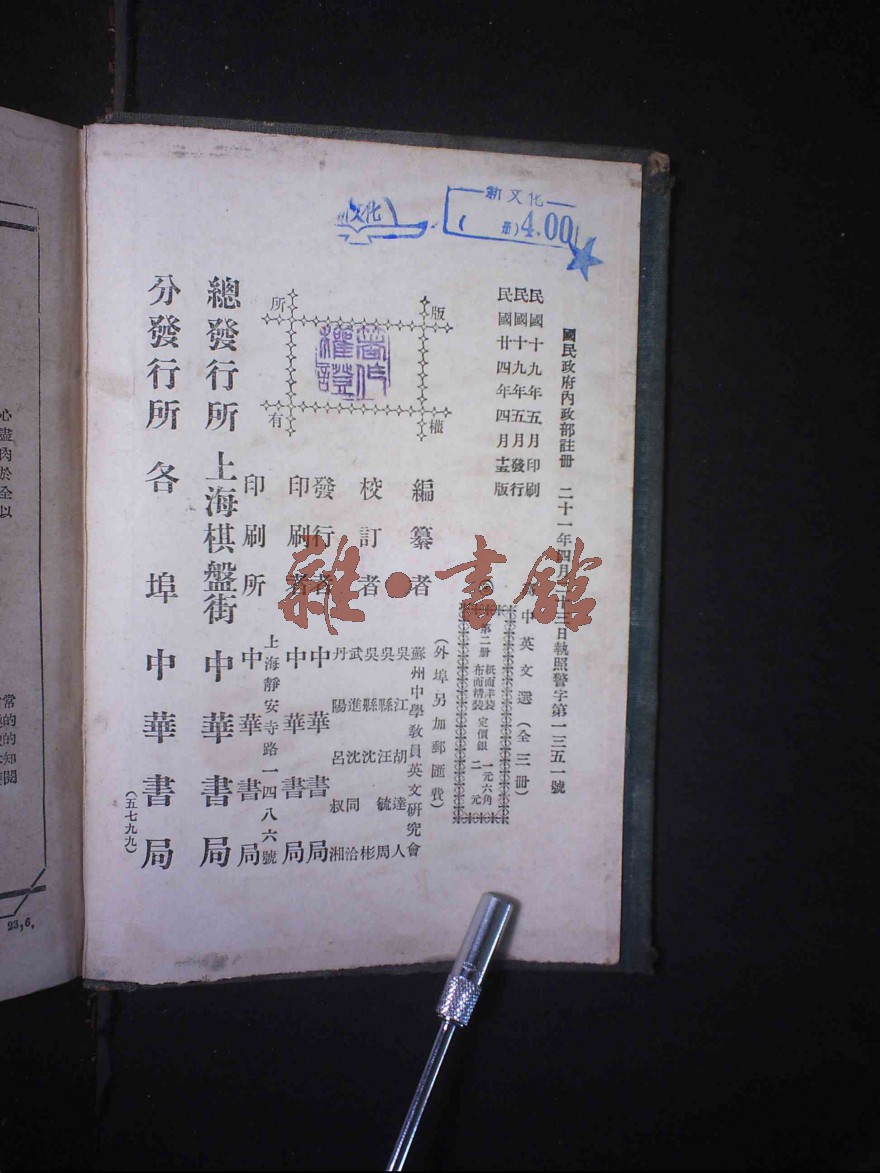 新文化
册)4.00
文化
國民政府內政部註冊 二十一年四月二十三日執照警字第一三五一號
民國十九年五月印刷
民國十九年五月發行
民國廿四年四月十五版
中英文選(全三冊)
第二冊 紙面平裝 定價銀 一元六角
布面精裝 二元
(外埠另加郵匯費)
版權所有
著作權證
編纂者 蘇州中學教員英文研究會
校訂者 吳江胡達人
吳縣汪毓周
吳縣沈彬
武進沈同洽
丹陽呂叔湘
發行者 中華書局
印刷者 中華書局
印刷所 上海靜安寺路一四八六號
中華書局
總發行所 上海棋盤街 中華書局
分發行所 各埠 中華書局
(五七九九)
雜·書館
心
盡
肉
於
全
以
常
的
的
知
閱
23,6.